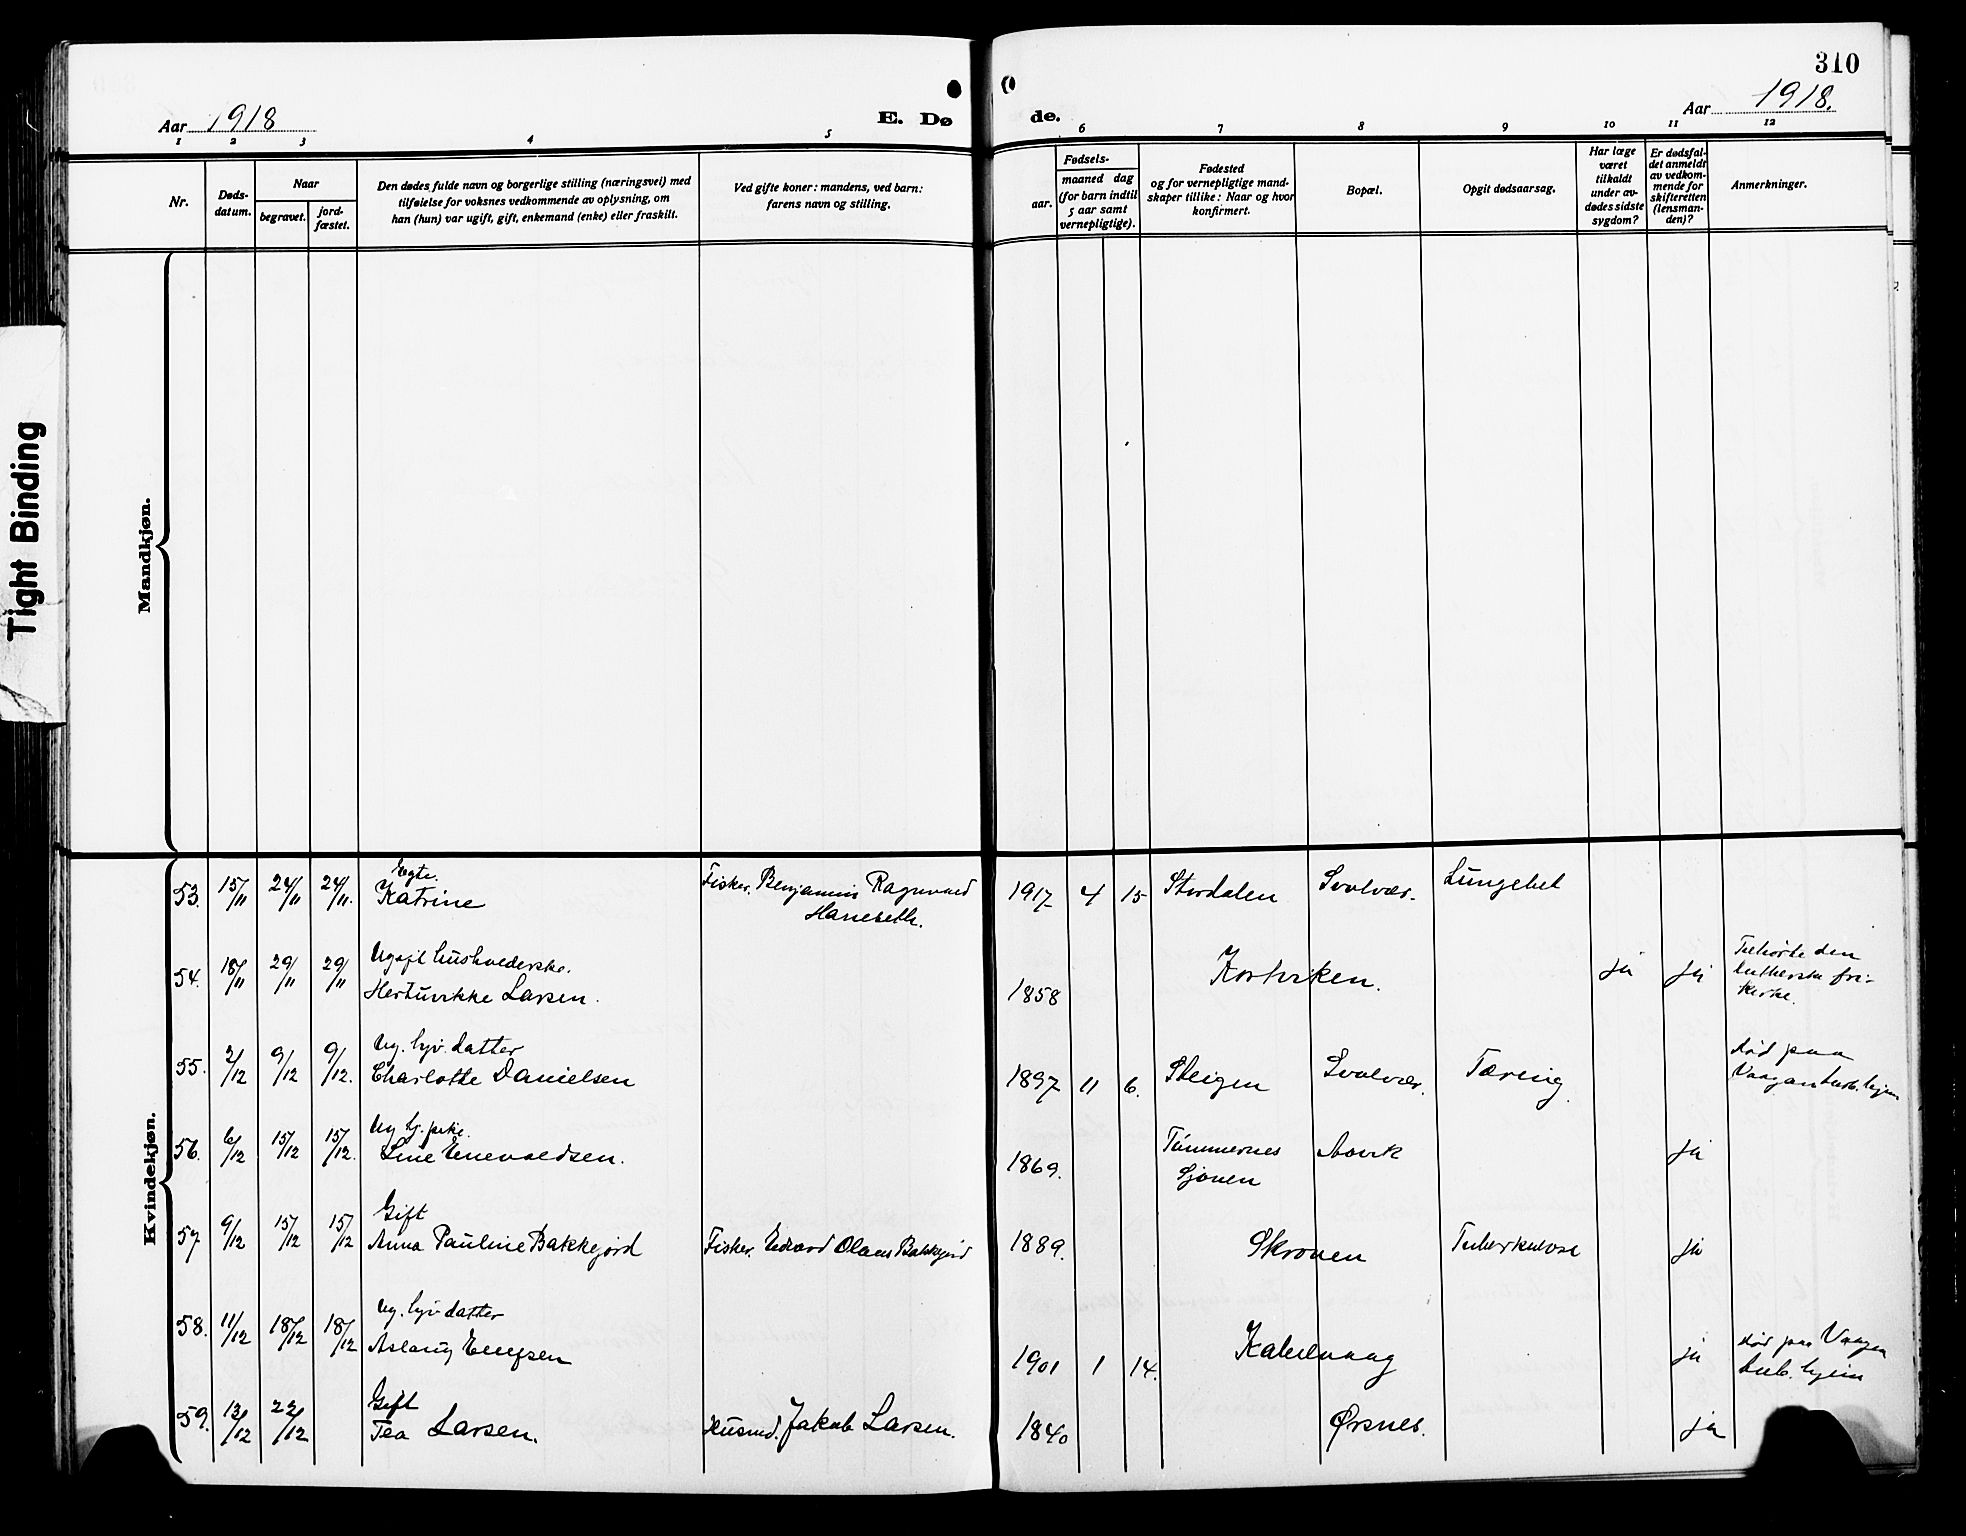 310
Aar 1918
E. Dø
de.
Aar 1918.
1 2 3 4 5 6 7 8 9 10 11 12
Nr.
Døds-
datum.
Naar
begravet.
jord-
fæstet.
Den dødes fulde navn og borgerlige stilling (næringsvei) med
tilføielse for voksnes vedkommende av oplysning, om
han (hun) var ugift, gift, enkemand (enke) eller fraskilt.
Ved gifte koner: mandens, ved barn:
farens navn og stilling.
Fødsels-
aar.
maaned dag
(for barn indtil
5 aar samt
vernepligtige).
Fødested
og for vernepligtige mand-
skaper tillike: Naar og hvor
konfirmert.
Bopæl.
Opgit dødsaarsag.
Har læge
været
tilkaldt
under av-
dødes sidste
sygdom?
Er dødsfal-
det anmeldt
av vedkom-
mende for
skifteretten
(lensman-
den)?
Anmerkninger.
Tight Binding
Mandkjøn.
Kvindekjøn.
Egte.
53. 15/11 24/11 24/11. Katrine Fisker. Benjamin Ragnvald
Haneseth. 1917 4 15 Stordalen Svolvær. Lungebet
Ugift
54. 18/11 29/11 29/11 Larsen. 1858 ja ja
Tilhørte den
lutherske fri-
kirke.
Ug. hjv. datter
55. 2/12 9/12 9/12. Charlotte Danielsen 1897 11 6. Steigen Svolvær. Tæring.
død paa
Vaagan tub. hjem
56. 6/12 15/12 15/12. Line Enevoldsen. 1869. Tømmernes ja
Gift
57 9/12 15/12 15/12 Anna Pauline Bakkejord Fisker. Edvard Olaus Bakkejord 1889. Skroven Tuberkulose ja
Ug. hjv. datter
58. 11/12 18/12 18/12 Aslaug 1901 1 14. Kabelvaag ja
død paa Vaagan
tub. hjem
Gift
59. 13/12 22/12 Tea Larsen. Husmd. Jakob Larsen. 1840 Ørsnes. ja